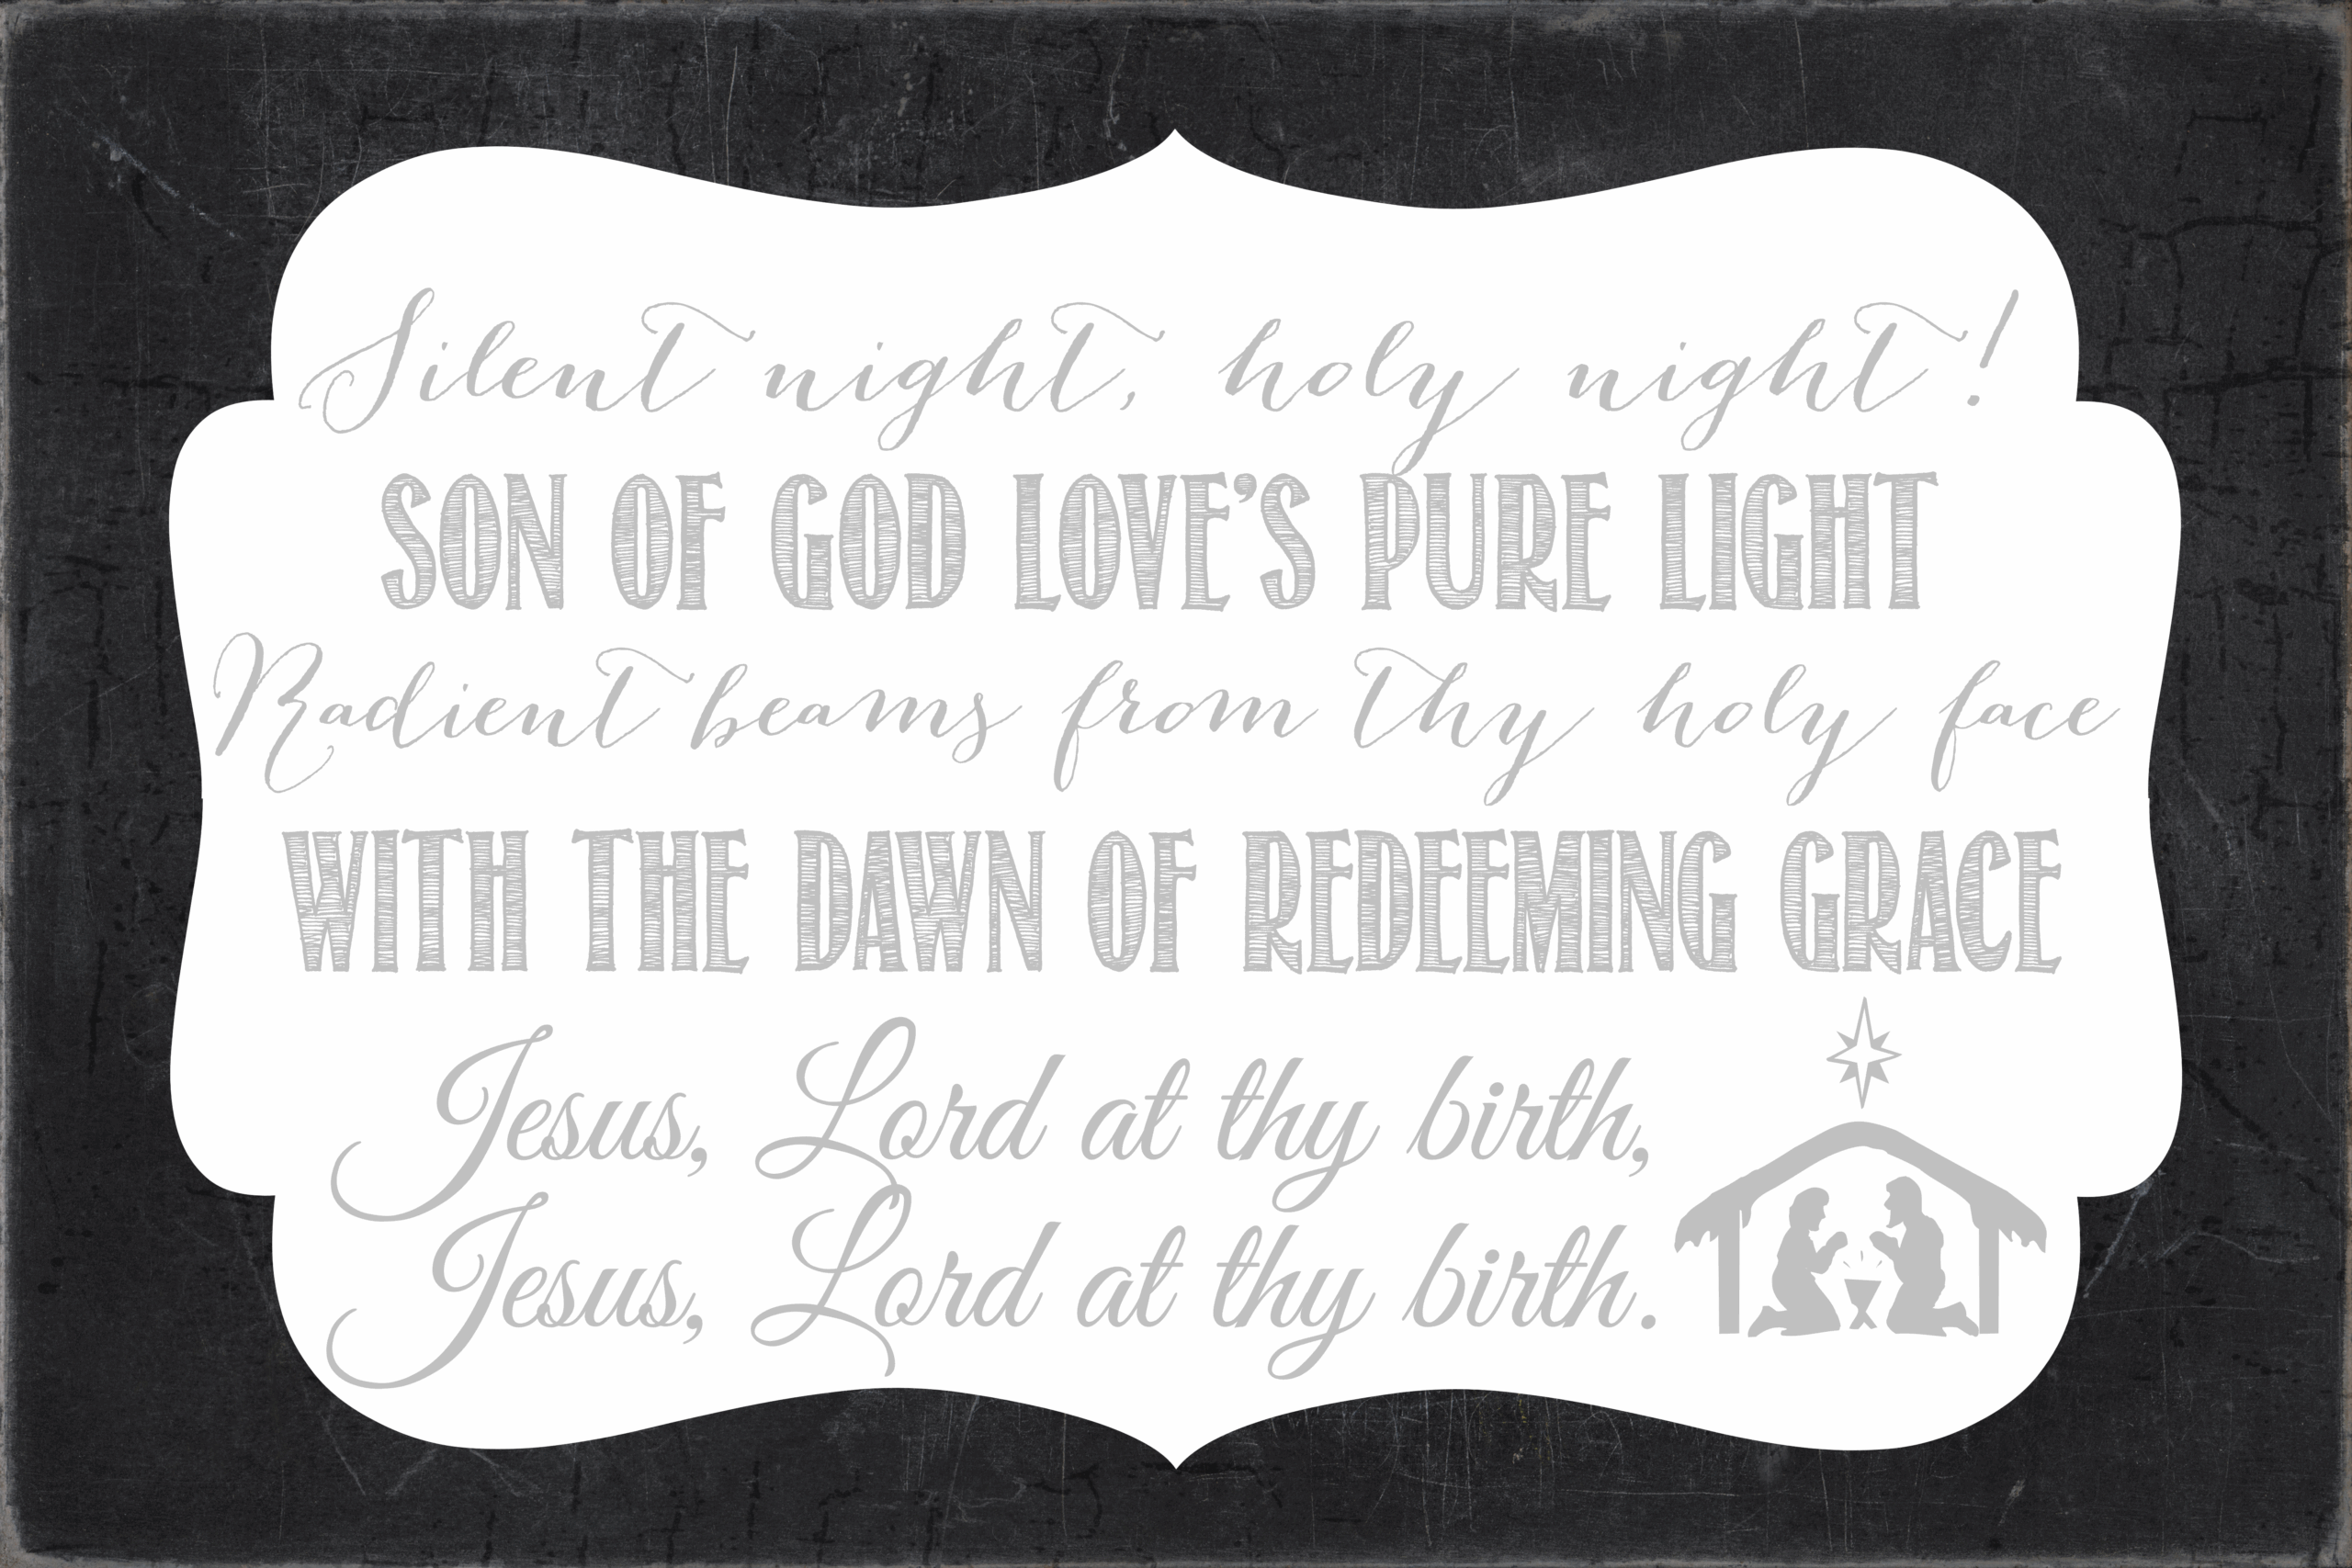 Silent night, holy night!
SON OF GOD LOVE'S PURE LIGHT
Radient beams from thy holy face
WITH THE DAWN OF REDEEMING GRACE
Jesus, Lord at thy birth,
Jesus, Lord at thy birth.